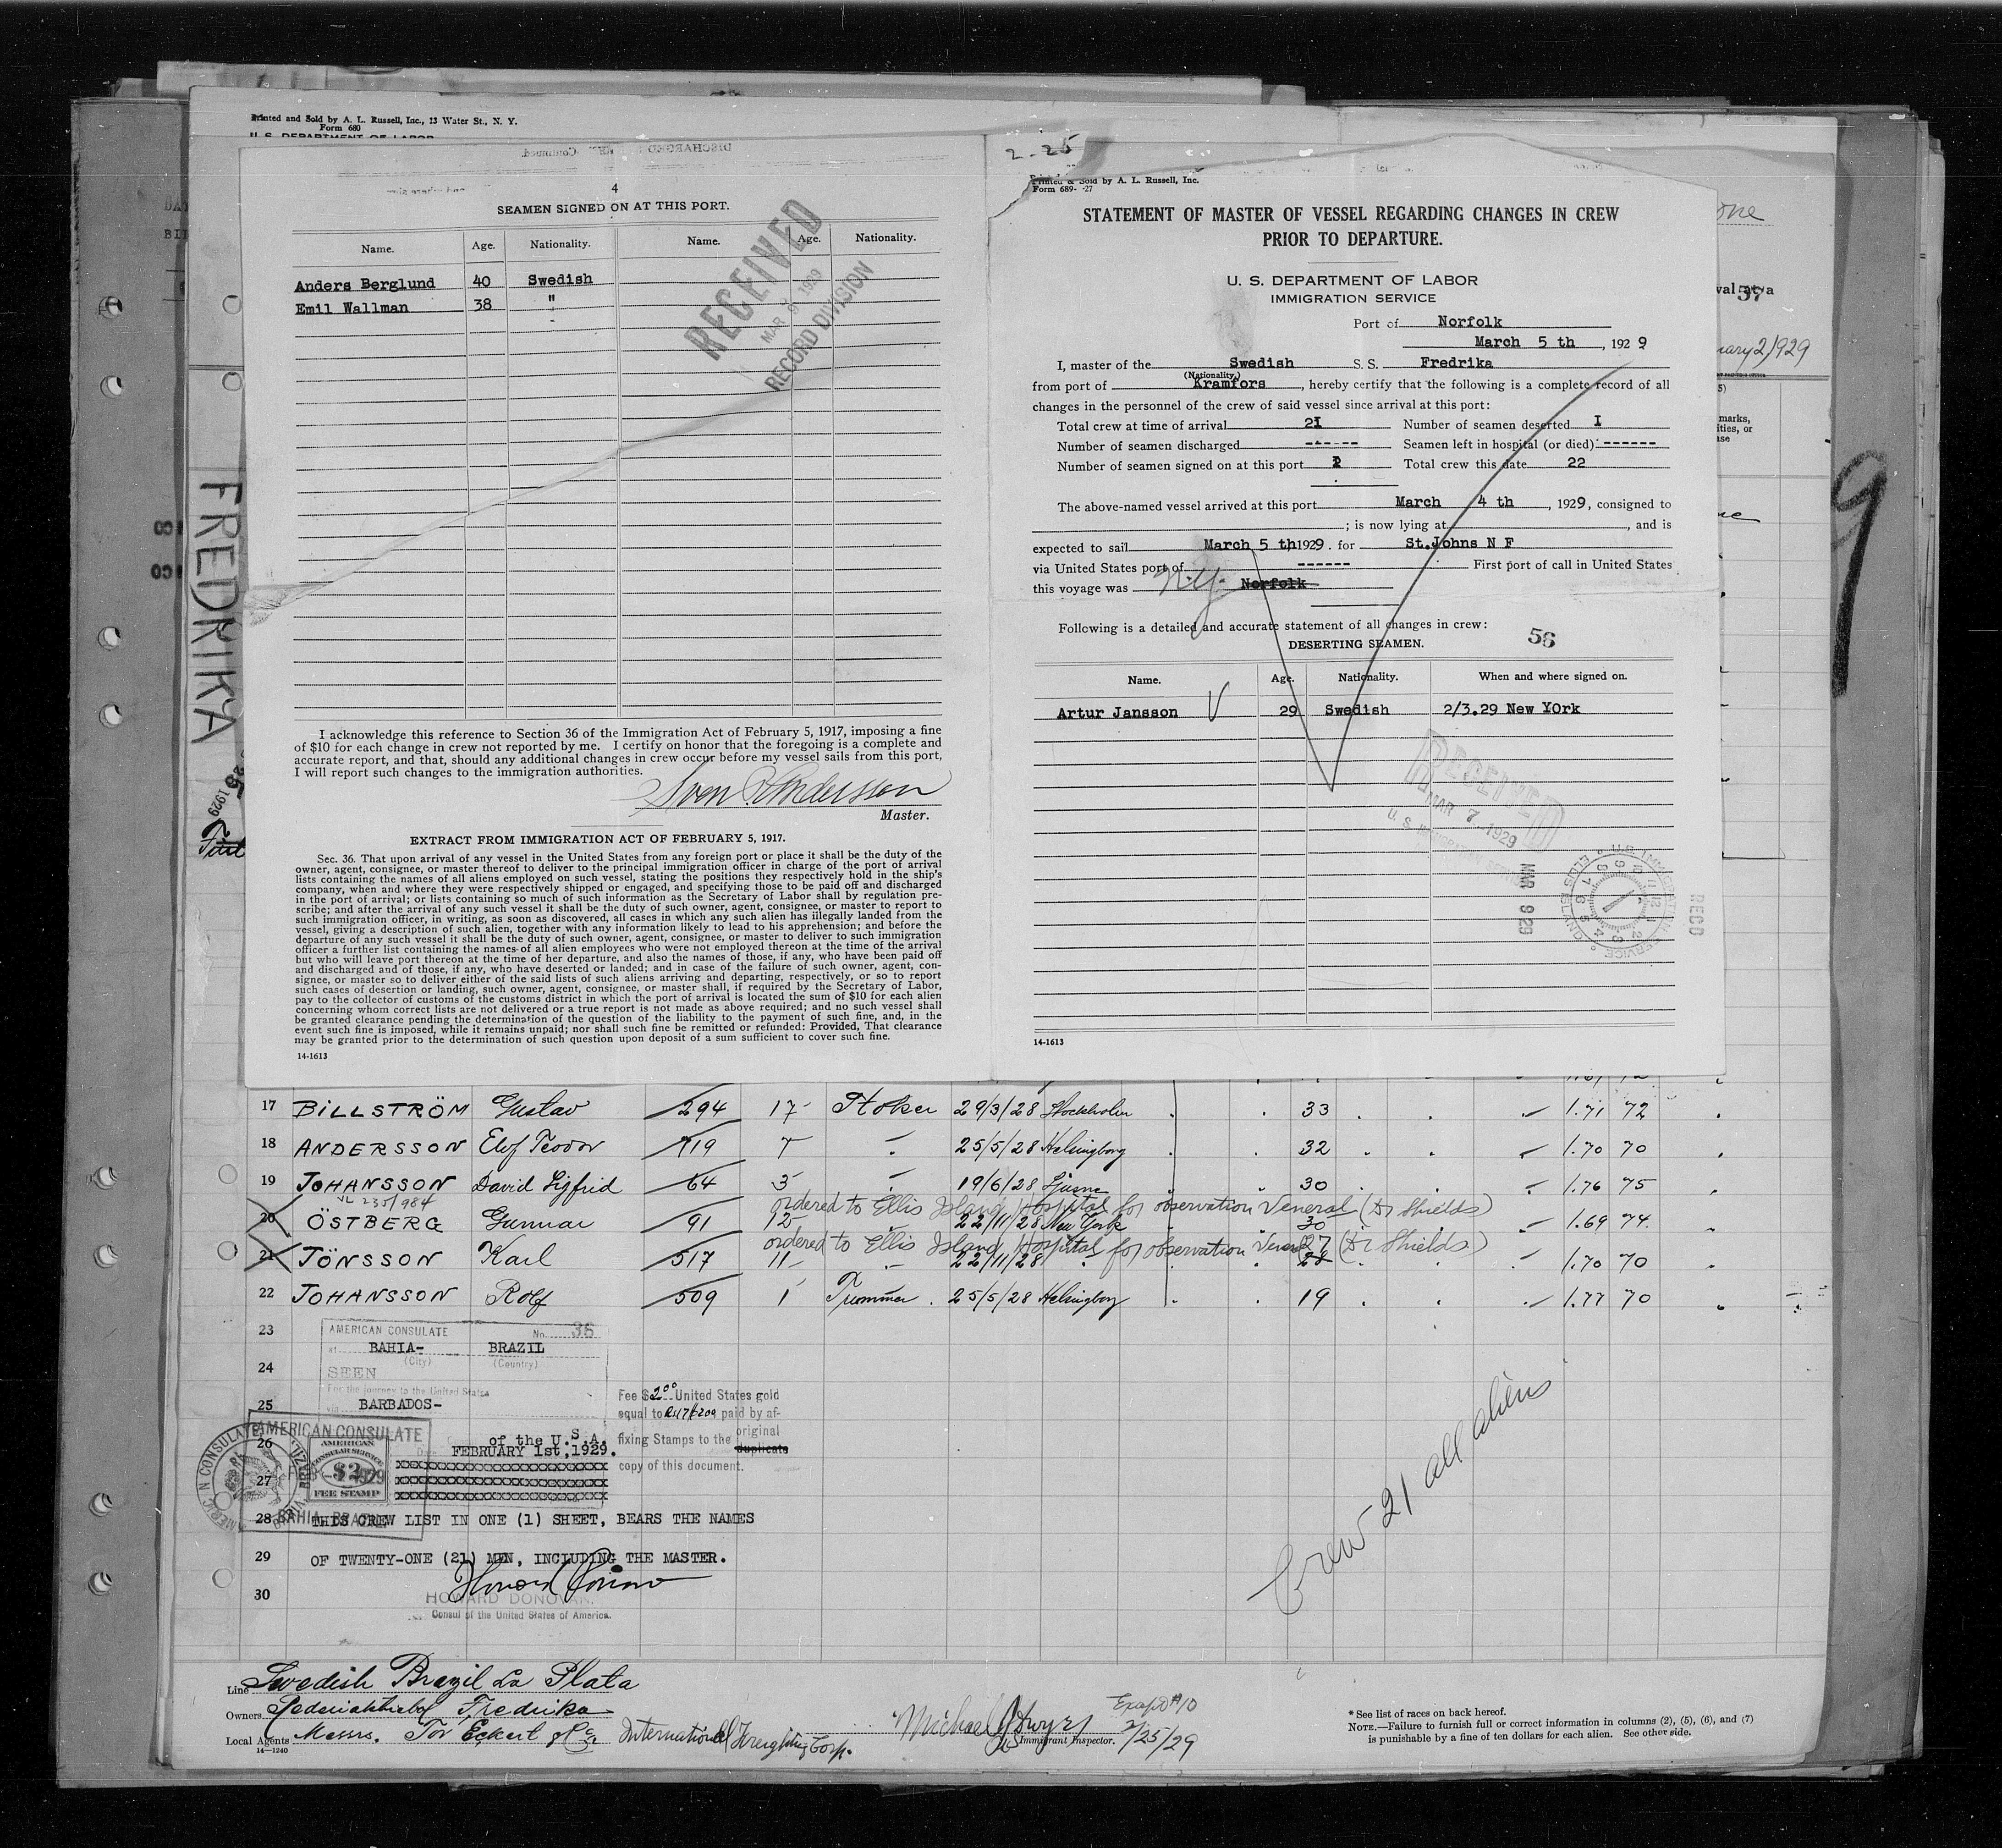 Printed and Sold by A. L. Russell, Inc., 13 Water St., N. Y.
Form 680
U. S. DEPARTMENT OF LABOR
DISCHARGED Continued
4
SEAMEN SIGNED ON AT THIS PORT.
Name. Age. Nationality. Name. Age. Nationality.
Anders Berglund 40 Swedish
Emil Wallman 38 "
RECEIVED
MAR 9 1929
RECORD DIVISION
I acknowledge this reference to Section 36 of the Immigration Act of February 5, 1917, imposing a fine
of $10 for each change in crew not reported by me. I certify on honor that the foregoing is a complete and
accurate report, and that, should any additional changes in crew occur before my vessel sails from this port,
I will report such changes to the immigration authorities.
Sven Andersson
Master.
EXTRACT FROM IMMIGRATION ACT OF FEBRUARY 5, 1917.
Sec. 36. That upon arrival of any vessel in the United States from any foreign port or place it shall be the duty of the
owner, agent, consignee, or master thereof to deliver to the principal immigration officer in charge of the port of arrival
lists containing the names of all aliens employed on such vessel, stating the positions they respectively hold in the ship's
company, when and where they were respectively shipped or engaged, and specifying those to be paid off and discharged
in the port of arrival; or lists containing so much of such information as the Secretary of Labor shall by regulation pre-
scribe; and after the arrival of any such vessel it shall be the duty of such owner, agent, consignee, or master to report to
such immigration officer, in writing, as soon as discovered, all cases in which any such alien has illegally landed from the
vessel, giving a description of such alien, together with any information likely to lead to his apprehension; and before the
departure of any such vessel it shall be the duty of such owner, agent, consignee, or master to deliver to such immigration
officer a further list containing the names of all alien employees who were not employed thereon at the time of the arrival
but who will leave port thereon at the time of her departure, and also the names of those, if any, who have been paid off
and discharged and of those, if any, who have deserted or landed; and in case of the failure of such owner, agent, con-
signee, or master so to deliver either of the said lists of such aliens arriving and departing, respectively, or so to report
such cases of desertion or landing, such owner, agent, consignee, or master shall, if required by the Secretary of Labor,
pay to the collector of customs of the customs district in which the port of arrival is located the sum of $10 for each alien
concerning whom correct lists are not delivered or a true report is not made as above required; and no such vessel shall
be granted clearance pending the determination of the question of the liability to the payment of such fine, and, in the
event such fine is imposed, while it remains unpaid; nor shall such fine be remitted or refunded: Provided, That clearance
may be granted prior to the determination of such question upon deposit of a sum sufficient to cover such fine.
14-1613
2-25
Printed & Sold by A. L. Russell, Inc.
Form 689- -27
STATEMENT OF MASTER OF VESSEL REGARDING CHANGES IN CREW
PRIOR TO DEPARTURE.
U. S. DEPARTMENT OF LABOR
IMMIGRATION SERVICE
Port of Norfolk
March 5 th, 1929
I, master of the Swedish S. S. Fredrika
(Nationality)
from port of Kramfors, hereby certify that the following is a complete record of all
changes in the personnel of the crew of said vessel since arrival at this port:
Total crew at time of arrival 2I Number of seamen deserted I
Number of seamen discharged ------ Seamen left in hospital (or died) ------
Number of seamen signed on at this port 2 Total crew this date 22
The above-named vessel arrived at this port March 4 th, 1929, consigned to
; is now lying at , and is
expected to sail March 5 th 1929. for St.Johns N F
via United States port of ------ First port of call in United States
this voyage was N.Y. Norfolk
Following is a detailed and accurate statement of all changes in crew:
DESERTING SEAMEN.
56
Name. Age. Nationality. When and where signed on.
Artur Jansson V 29 Swedish 2/3.29 New YOrk
RECEIVED
MAR 7 1929
MAR 9 29
RECD
14-1613
57
val at a
uary 2/1929
FREDRIKA
9
17 BILLSTRÖM Gustav 294 17 Stoker 29/3/28 Stockholm 33 1.71 72
18 ANDERSSON Elof Teodor 719 7 " 25/5/28 Helsingborg 32 1.70 70
19 JOHANSSON David Sigfrid 64 3 " 19/6/28 Ljusne 30 1.76 75
235/984 ordered to Ellis Island Hospital for observation Veneral (Dr Shields)
20 ÖSTBERG Gunnar 91 12 " 22/11/28 New York 30 1.69 74
ordered to Ellis Island Hospital for observation Veneral (Dr Shields)
21 JÖNSSON Karl 517 11 " 22/11/28 " 27 28 1.70 70
22 JOHANSSON Rolf 509 1 Trimmer 25/5/28 Helsingborg 19 1.77 70
23
24
25
26
27
28
29
30
AMERICAN CONSULATE No. 36
at BAHIA- BRAZIL
(City) (Country)
SEEN
For the journey to the United States
via BARBADOS-
of the U.S.A.
Date FEBRUARY 1st,1929.
Fee $2.00 United States gold
equal to paid by af-
fixing Stamps to the original
duplicate
copy of this document.
AMERICAN CONSULATE
AMERICAN
CONSULAR SERVICE
$2
FEE STAMP
BAHIA, BRAZIL
THIS CREW LIST IN ONE (1) SHEET, BEARS THE NAMES
OF TWENTY-ONE (21) MEN, INCLUDING THE MASTER.
Howard Donovan
HOWARD DONOVAN.
Consul of the United States of America.
Crew 21 all aliens
Line Swedish Brazil La Plata
Owners Rederiaktiebol Fredrika
Local Agents Messrs. Tor Eckert & Co International Freighting Corp.
14-1240
Michael J Dwyer
Immigrant Inspector.
2/25/29
* See list of races on back hereof.
NOTE.—Failure to furnish full or correct information in columns (2), (5), (6), and (7)
is punishable by a fine of ten dollars for each alien. See other side.